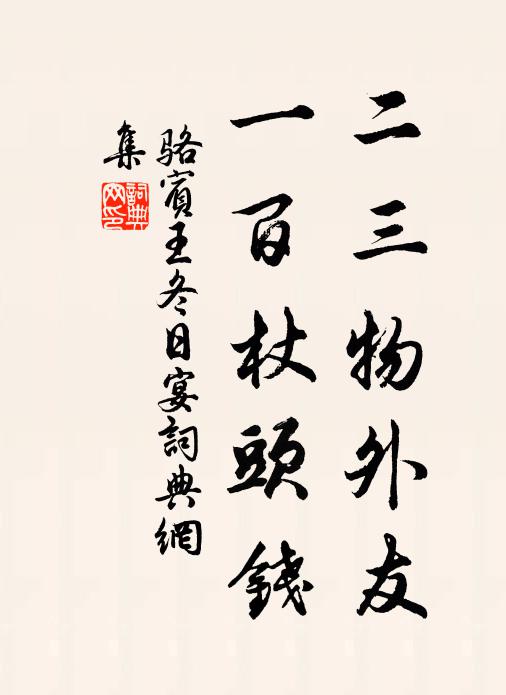 二三物外友
一百杖頭錢
駱賓王冬日宴詞典網
集
詞典網印